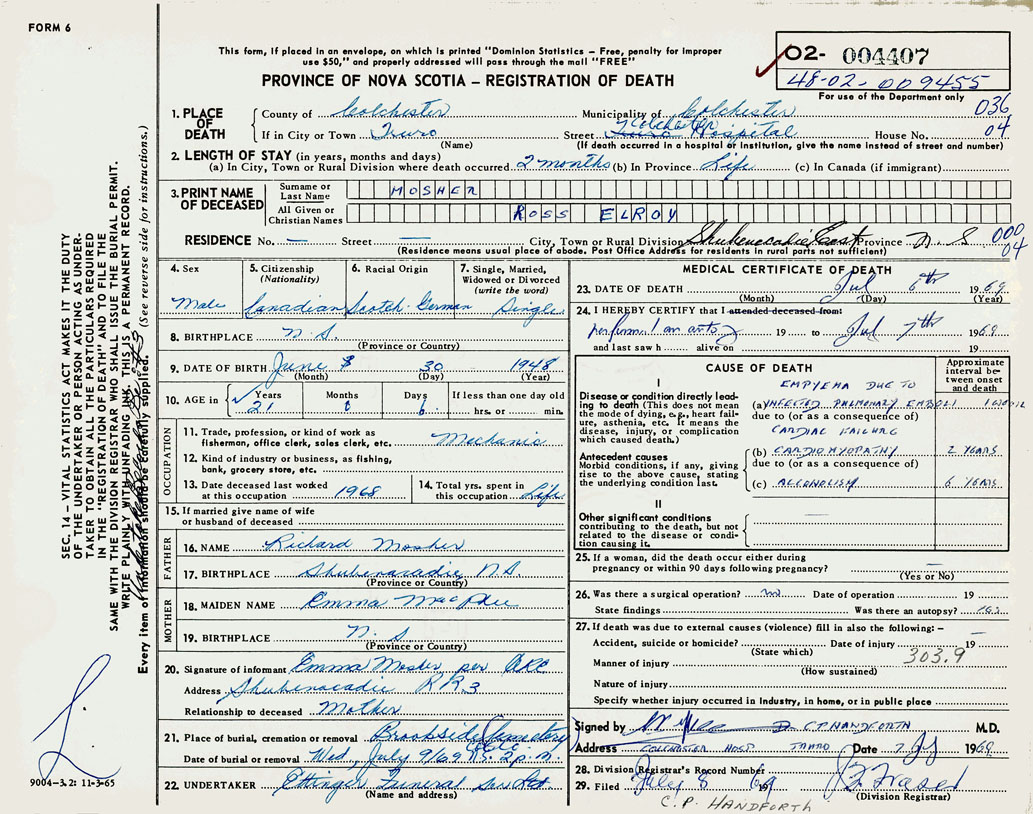 FORM 6
This form, if placed in an envelope, on which is printed "Dominion Statistics – Free, penalty for improper
use $50," and properly addressed will pass through the mail "FREE"
PROVINCE OF NOVA SCOTIA – REGISTRATION OF DEATH
02- 004407
48-02-009455
For use of the Department only
036
04
1. PLACE OF DEATH
County of Colchester Municipality of Colchester
If in City or Town Truro Street Colchester Hospital House No.
(Name) (If death occurred in a hospital or institution, give the name instead of street and number)
2. LENGTH OF STAY (in years, months and days)
(a) In City, Town or Rural Division where death occurred 2 months (b) In Province Life (c) In Canada (if immigrant)
3. PRINT NAME OF DECEASED
Surname or Last Name MOSHER
All Given or Christian Names ROSS ELROY
RESIDENCE No. — Street — City, Town or Rural Division Shubenacadie East Province N.S
(Residence means usual place of abode. Post Office Address for residents in rural parts not sufficient)
000
04
4. Sex
Male
5. Citizenship (Nationality)
Canadian
6. Racial Origin
Scotch-German
7. Single, Married, Widowed or Divorced (write the word)
Single
8. BIRTHPLACE N.S.
(Province or Country)
9. DATE OF BIRTH June 30 1948
(Month) (Day) (Year)
10. AGE in Years Months Days If less than one day old
21 6 hrs. or min.
OCCUPATION
11. Trade, profession, or kind of work as
fisherman, office clerk, sales clerk, etc. Mechanic
12. Kind of industry or business, as fishing,
bank, grocery store, etc.
13. Date deceased last worked at this occupation 1968
14. Total yrs. spent in this occupation Life
15. If married give name of wife
or husband of deceased
FATHER
16. NAME Richard Mosher
17. BIRTHPLACE Shubenacadie, N.S.
(Province or Country)
MOTHER
18. MAIDEN NAME Emma MacPhee
19. BIRTHPLACE N.S
(Province or Country)
20. Signature of informant Emma Mosher per
Address Shubenacadie RR3
Relationship to deceased Mother
21. Place of burial, cremation or removal Brookside Cemetery
Date of burial or removal Wed, July 9/69 2 p.m.
22. UNDERTAKER Ettinger Funeral
(Name and address)
MEDICAL CERTIFICATE OF DEATH
23. DATE OF DEATH Jul 6th 1969
(Month) (Day) (Year)
24. I HEREBY CERTIFY that I attended deceased from:
19 to Jul 7th 1969
and last saw h alive on 19
CAUSE OF DEATH
Approximate interval between onset and death
I
Disease or condition directly leading to death (This does not
mean the mode of dying, e.g., heart failure, asthenia, etc. It means the
disease, injury, or complication
which caused death.)
EMPYEMA DUE TO
(a) INFECTED PULMONARY EMBOLI
due to (or as a consequence of)
CARDIAC FAILURE
Antecedent causes
Morbid conditions, if any, giving
rise to the above cause, stating
the underlying condition last.
(b) CARDIOMYOPATHY 2 YEARS
due to (or as a consequence of)
(c) ALCOHOLISM 6 YEARS
II
Other significant conditions
contributing to the death, but not
related to the disease or condition causing it.
25. If a woman, did the death occur either during
pregnancy or within 90 days following pregnancy? —
(Yes or No)
26. Was there a surgical operation? Date of operation 19
State findings Was there an autopsy? Yes
27. If death was due to external causes (violence) fill in also the following: –
Accident, suicide or homicide? Date of injury 19
(State which)
303.9
Manner of injury
(How sustained)
Nature of injury
Specify whether injury occurred in Industry, in home, or in public place
Signed by C P HANDFORTH M.D.
Address COLCHESTER HOSP TRURO Date 7 Jly 1969
28. Division Registrar's Record Number
29. Filed July 8 1969
(Division Registrar)
C. P. HANDFORTH
SEC. 14 – VITAL STATISTICS ACT MAKES IT THE DUTY
OF THE UNDERTAKER OR PERSON ACTING AS UNDERTAKER TO OBTAIN ALL THE PARTICULARS REQUIRED
IN THE "REGISTRATION OF DEATH" AND TO FILE THE
SAME WITH THE DIVISION REGISTRAR WHO SHALL ISSUE THE BURIAL PERMIT.
WRITE PLAINLY WITH UNFADING INK. THIS IS A PERMANENT RECORD.
Every item of information should be carefully supplied. (See reverse side for instructions.)
9004-3.2: 11-3-65